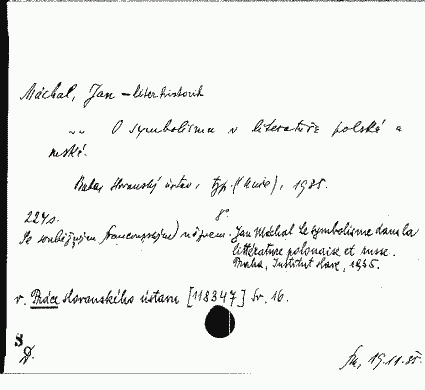 Máchal, Jan - liter. historik
„ „ O symbolismu v literatuře polské a
ruské.
Praha, Slovanský ústav, typ. (Unie), 1935.
224 s. 8°.
Se souběžným francouzským názvem. Jan Máchal Le symbolisme dans la
littérature polonaise et russe.
Praha, Institut slave, 1935.
v. Práce Slovanského ústavu [118347] Sv. 16.
S
19.11.85.